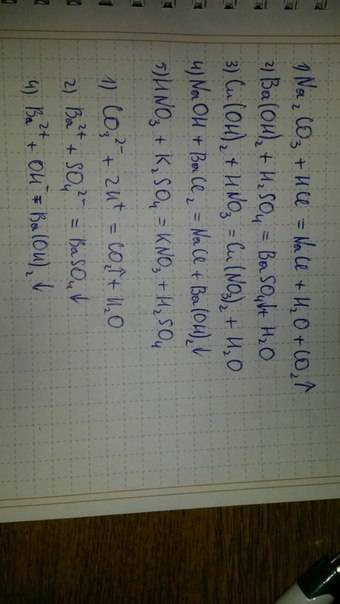 1) Na₂CO₃ + HCl = NaCl + H₂O + CO₂↑
2) Ba(OH)₂ + H₂SO₄ = BaSO₄↓ + H₂O
3) Cu(OH)₂ + HNO₃ = Cu(NO₃)₂ + H₂O
4) NaOH + BaCl₂ = NaCl + Ba(OH)₂↓
5) HNO₃ + K₂SO₄ = KNO₃ + H₂SO₄
1) CO₃²⁻ + 2H⁺ = CO₂↑ + H₂O
2) Ba²⁺ + SO₄²⁻ = BaSO₄↓
4) Ba²⁺ + OH⁻ = Ba(OH)₂↓